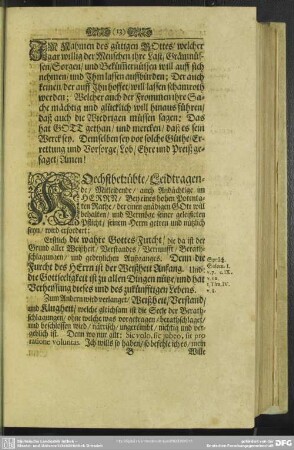 (13)
IM Nahmen des gütigen GOttes/ welcher
gar willig der Menschen ihre Last, Grämnüs-
sen/Sorgen/ und Bekümmernüssen will auff sich
nehmen/ und Ihm lassen auffbürden; Der auch
keinen/ der auff Ihn hoffet/ will lassen schamroth
werden; Welcher auch der Frommen ihre Sa-
che mächtig und glücklich will hinaus führen/
daß auch die Widrigen müssen sagen: Das
hat GOTT gethan/ und mercken/ daß es sein
Werck sey. Demselben sey vor solche Güthe/ Er-
rettung und Vorsorge/ Lob/ Ehre und Preiß ge-
saget/ Amen!
HOechstbetrübte/ Leidtragen-
de/ Mitleidende/ auch Andächtige im
HERRN/ Bey eines hohen Potenta-
ten Rathe/ der einen gnädigen GOtt will
behalten/ und Vermöge seiner geleisteten
Pflicht/ seinem Herrn getreu und nützlich
seyn/ wird erfordert:
Erstlich die wahre Gottes-Furcht/ die da ist der
Grund aller Weißheit/ Verstandes/ Vernunfft/ Berath-
schlagungen/ und gedeylichen Außganges. Denn die
Furcht des HErrn ist der Weißheit Anfang. Und:
die Gottseligkeit ist zu allen Dingen nütze/ und hat
Verheissung dieses und des zukünfftigen Lebens.
Zum Andern wird verlanget/ Weißheit/ Verstand/
und Klugheit/ welche gleichsam ist die Seele der Berath-
schlagungen/ ohne welche was vorgetragen/ berathschlaget/
und beschlossen wird/ närrisch/ ungereimbt/ nichtig und ver-
geblich ist. Denn wo nur gilt: Sic volo, sic jubeo, sit pro
ratione voluntas. Ich wills so haben/ so befehle ich es/ mein
B Wille